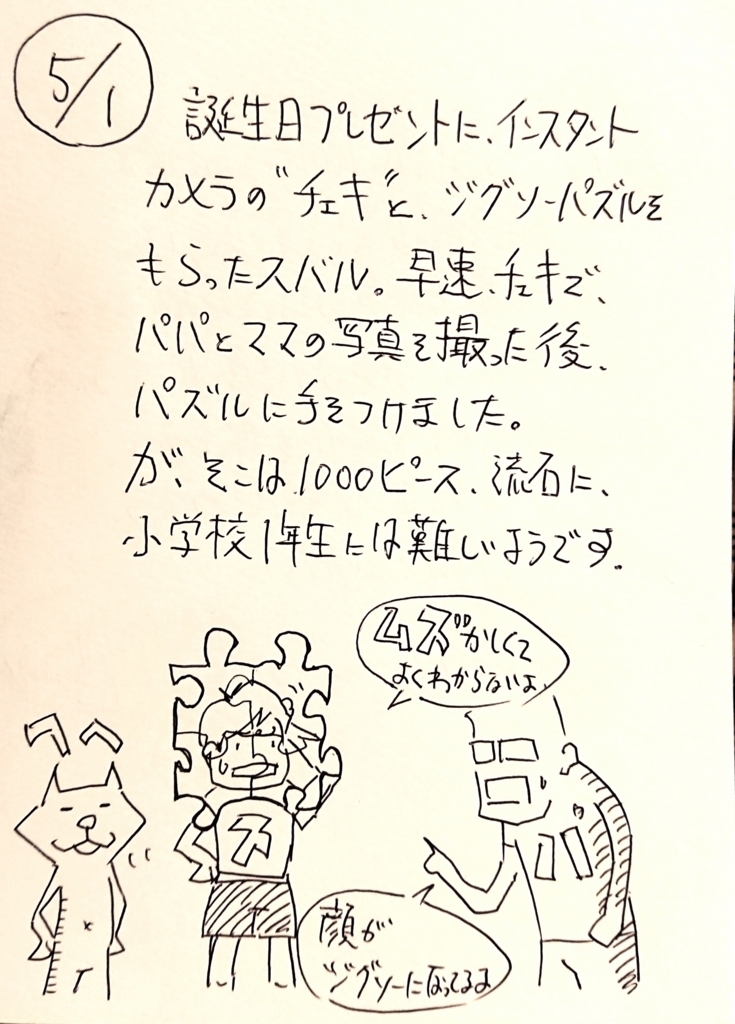 5/1
誕生日プレゼントに、インスタント
カメラの"チェキ"と、ジグソーパズルを
もらったスバル。早速、チェキで、
パパとママの写真を撮った後、
パズルに手をつけました。
が、そこは1000ピース、流石に、
小学校1年生には難しいようです。
ムズかしくて
よくわからないよ
ス
顔が
ジグソーになってるよ